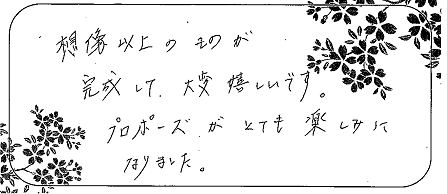 想像以上のものが
完成して、大変嬉しいです。
プロポーズがとても楽しみに
なりました。